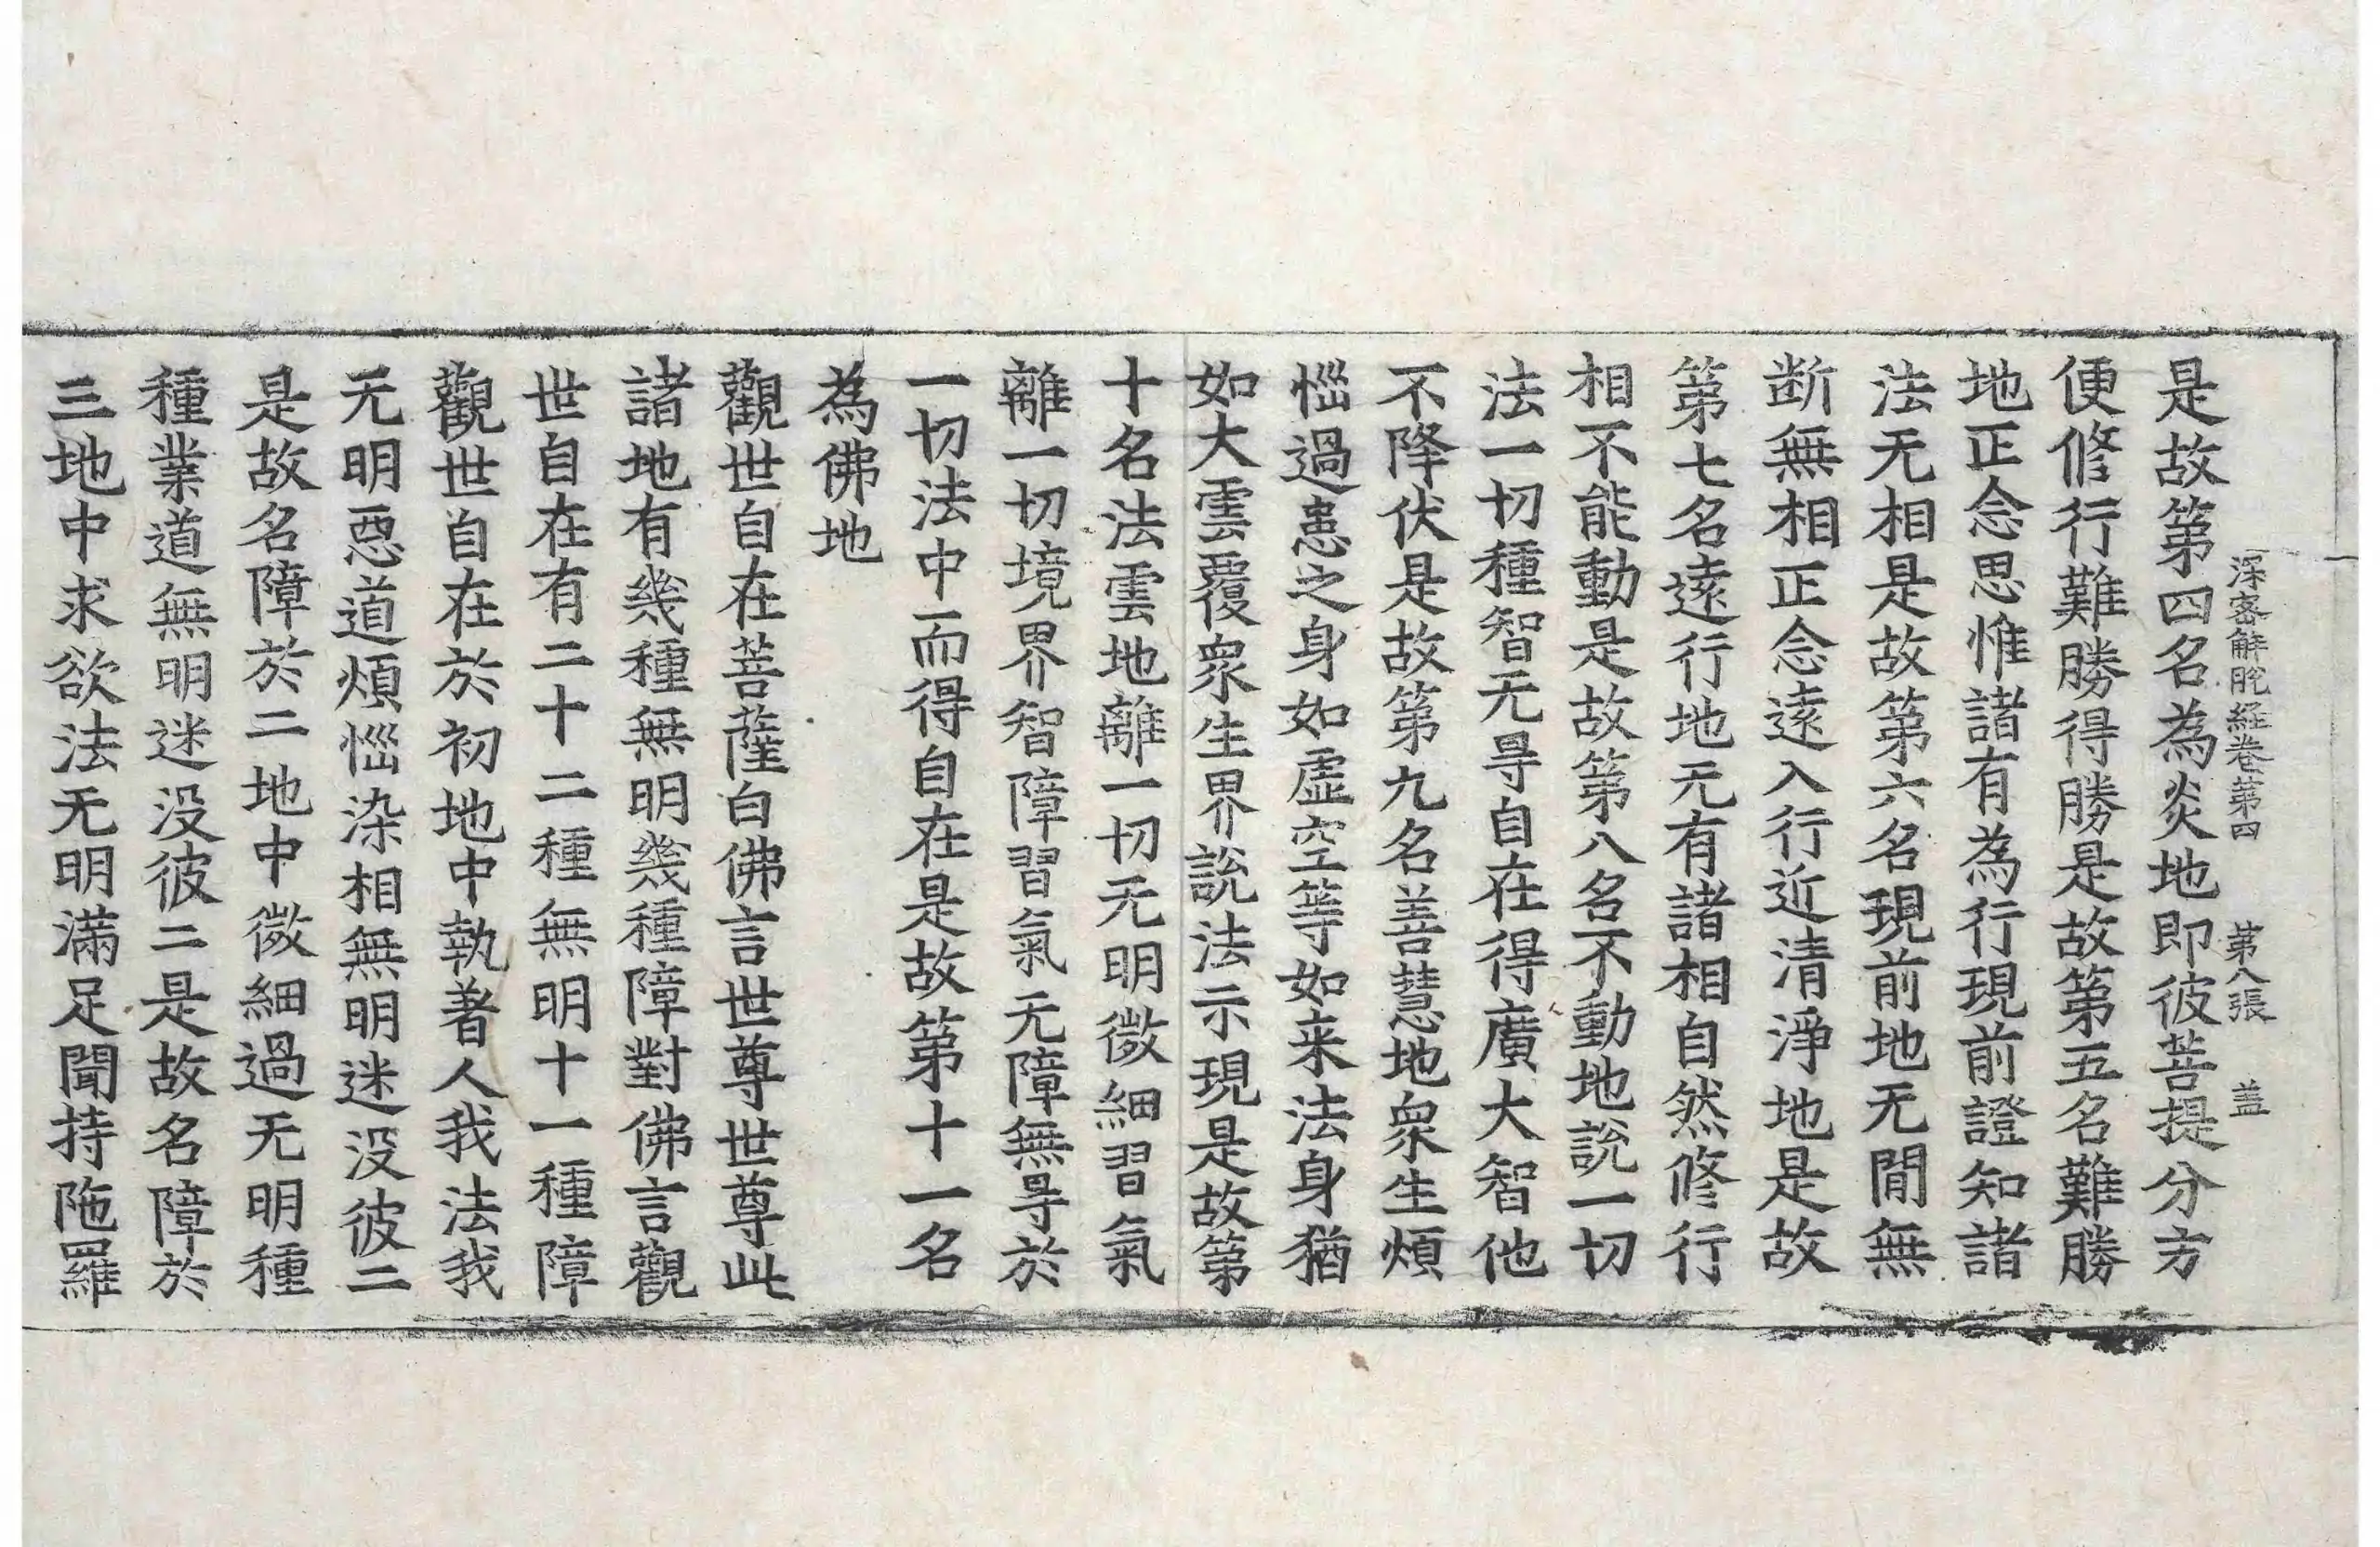 深密解脫経卷第四　第八張　盖
是故第四名為炎地即彼菩提分方
便修行難勝得勝是故第五名難勝
地正念思惟諸有為行現前證知諸
法无相是故第六名現前地无閒無
断無相正念遠入行近清淨地是故
第七名遠行地无有諸相自然修行
相不能動是故第八名不動地說一切
法一切種智无㝵自在得廣大智他
不降伏是故第九名善慧地衆生煩
惱過患之身如虛空等如来法身猶
如大雲覆衆生界說法示現是故第
十名法雲地離一切无明微細習氣
離一切境界智障習氣无障無㝵於
一切法中而得自在是故第十一名
為佛地
觀世自在菩薩白佛言世尊世尊此
諸地有幾種無明幾種障對佛言觀
世自在有二十二種無明十一種障
觀世自在於初地中執著人我法我
无明惡道煩惱染相無明迷没彼二
是故名障於二地中微細過无明種
種業道無明迷没彼二是故名障於
三地中求欲法无明滿足聞持陁羅